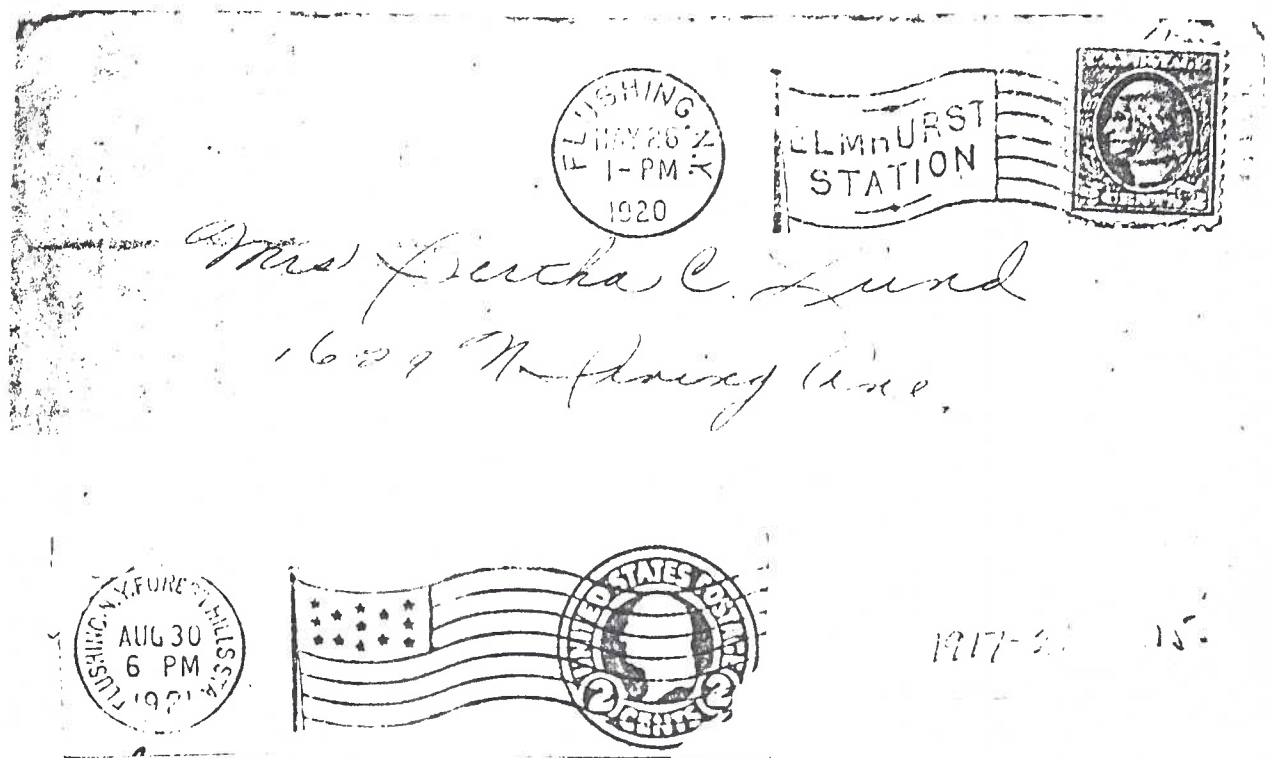 FLUSHING N.Y.
MAY 26
1-PM
1920
ELMHURST
STATION
CENTS
Mrs Bertha C. Lund
N. Ave.
FLUSHING, N.Y. FOREST HILLS STA.
AUG 30
6 PM
1921
UNITED STATES POSTAGE
2 CENTS 2
1917-